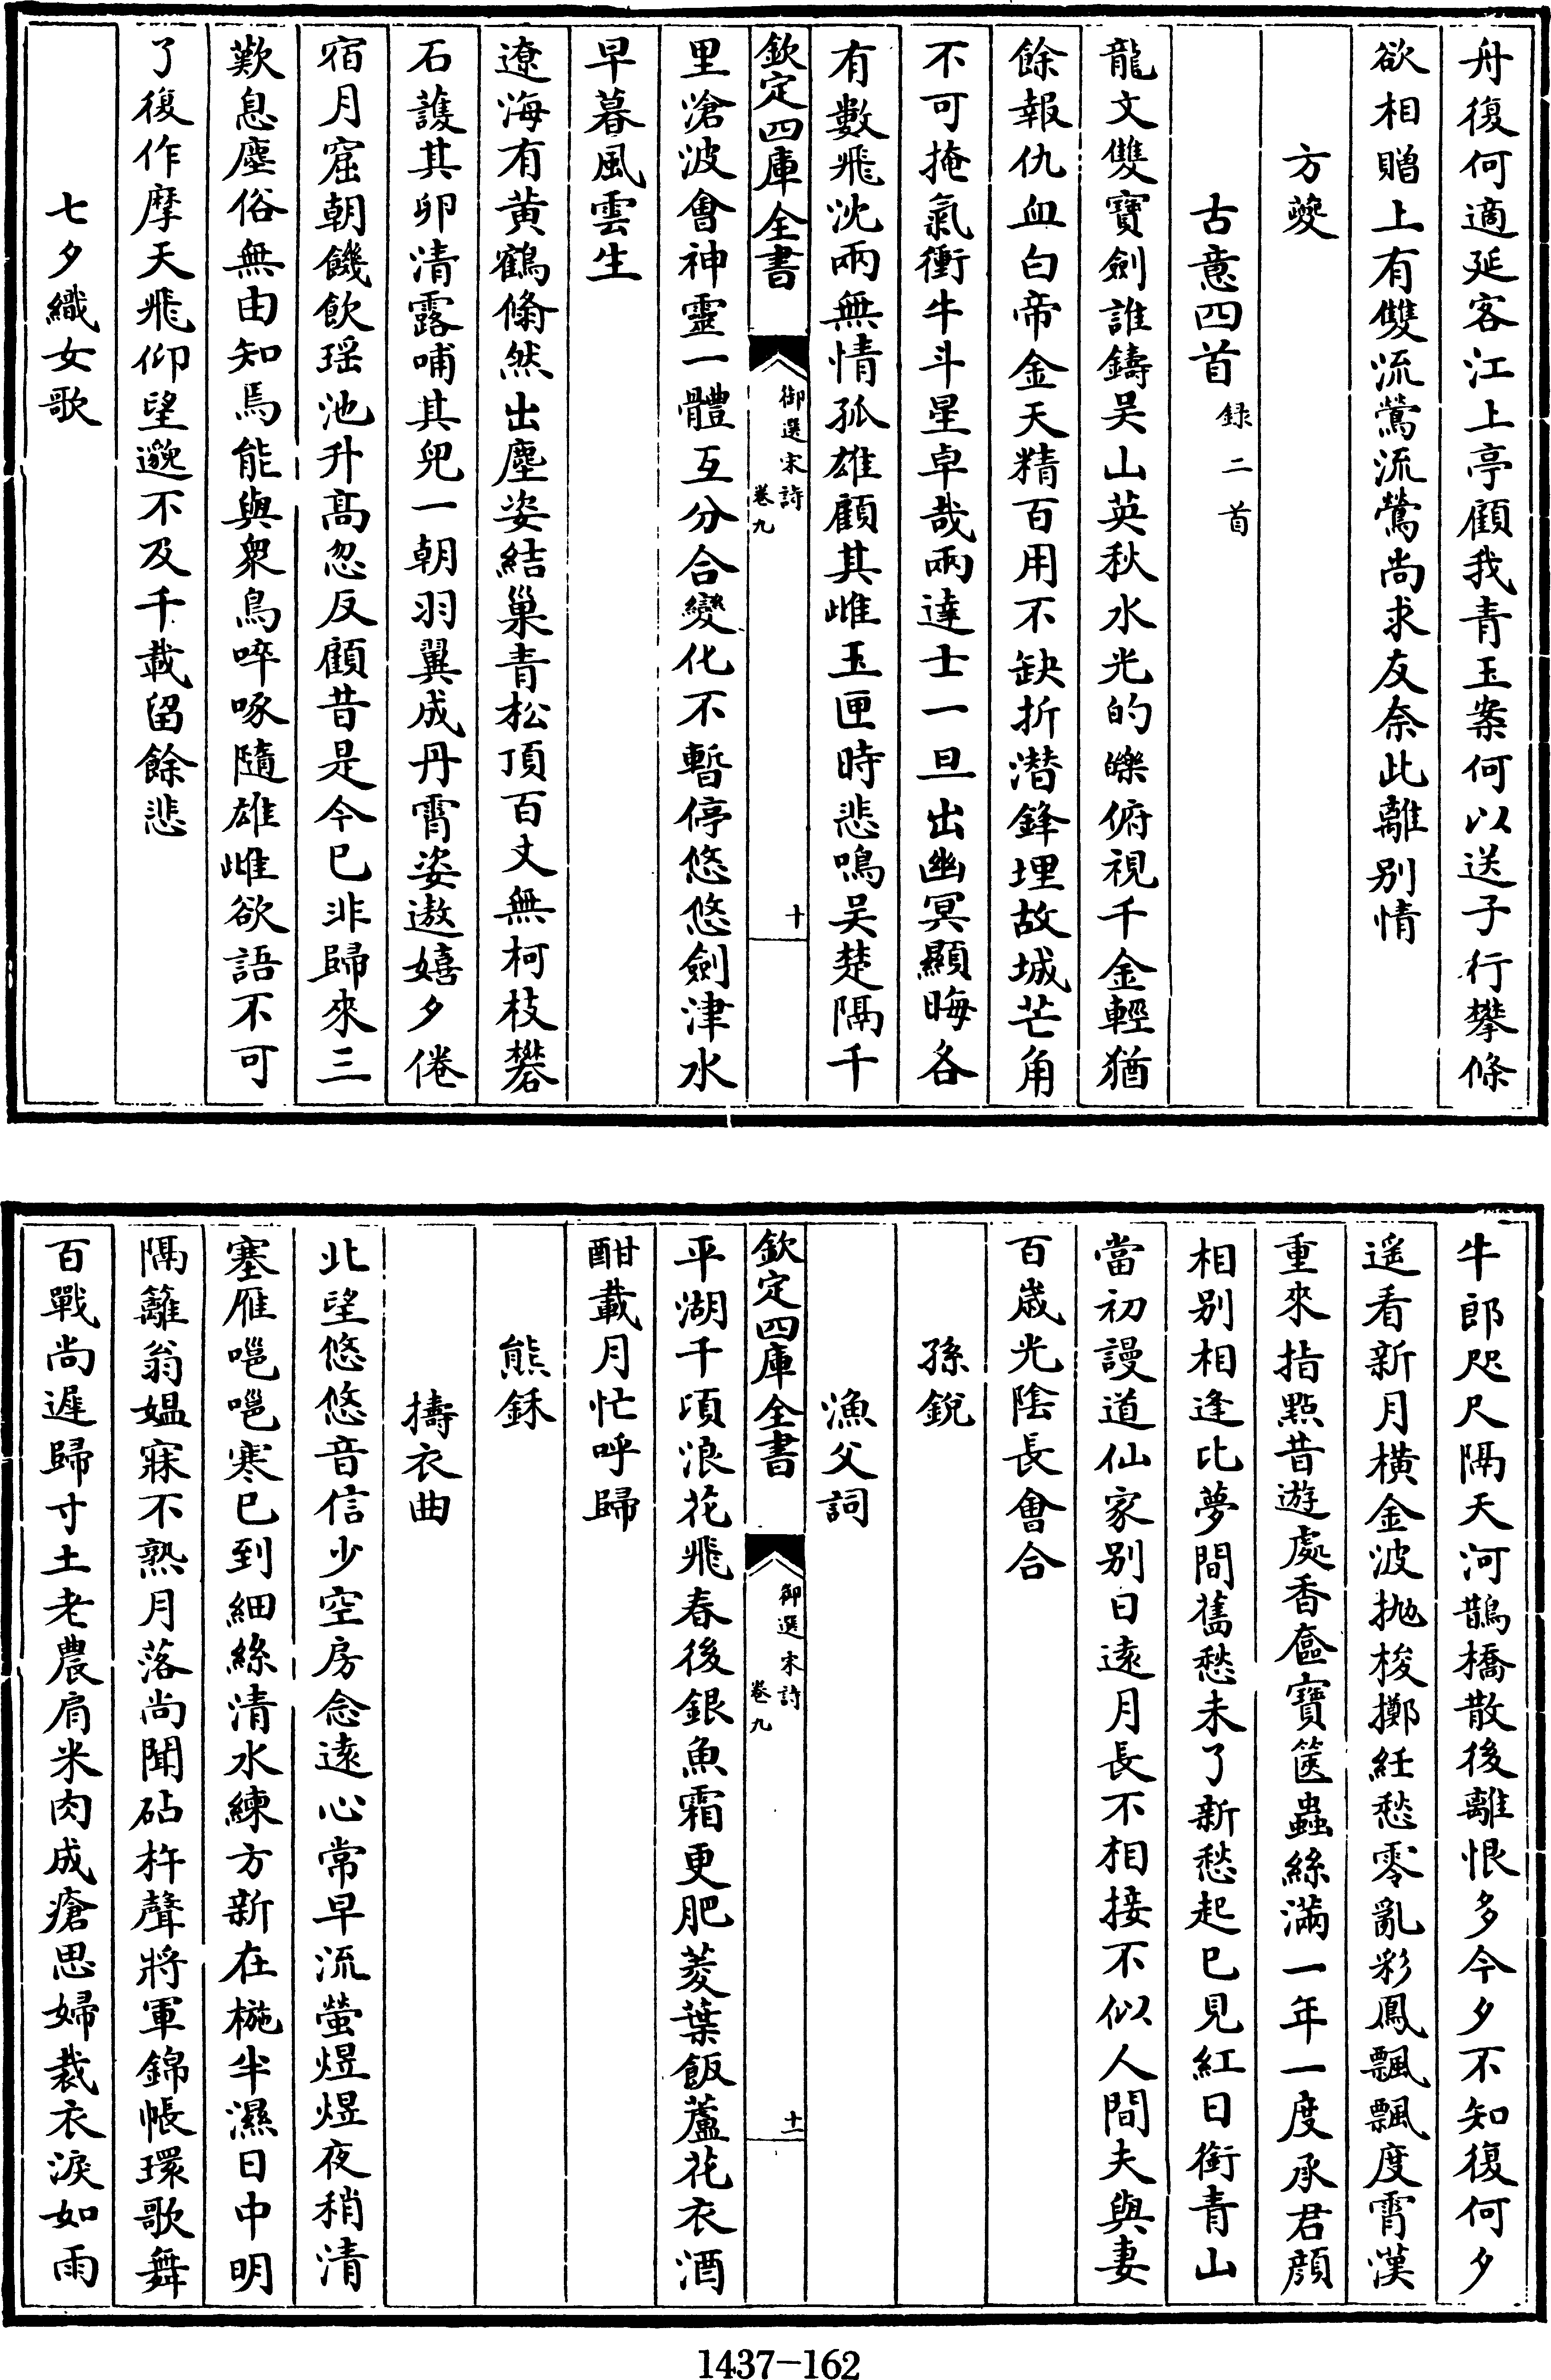 舟復何適延客江上亭顧我青玉案何以送子行攀條
欲相贈上有雙流鶯流鶯尚求友奈此離别情
方夔
古意四首録二首
龍文雙寶劍誰鑄吴山英秋水光的皪俯視千金輕猶
餘報仇血白帝金天精百用不缺折潛鋒埋故城芒角
不可掩氣衝牛斗星卓哉兩達士一旦出幽冥顯晦各
有數飛沈兩無情孤雄顧其雌玉匣時悲鳴吴楚隔千
欽定四庫全書
御選宋詩
卷九
十
里滄波會神靈一體互分合變化不暫停悠悠劍津水
早暮風雲生
遼海有黄鶴翛然出塵姿結巢青松頂百丈無柯枝礬
石護其卵清露哺其兒一朝羽翼成丹霄姿遨嬉夕倦
宿月窟朝饑飲瑶池升髙忽反顧昔是今已非歸來三
歎息塵俗無由知焉能與衆鳥啐啄隨雄雌欲語不可
了復作摩天飛仰望邈不及千載留餘悲
七夕織女歌
牛郎咫尺隔天河鵲橋散後離恨多今夕不知復何夕
遥看新月橫金波抛梭擲紝愁零亂彩鳳飄飄度霄漢
重來指點昔遊處香奩寶篋蟲絲滿一年一度承君顔
相别相逢比夢間舊愁未了新愁起已見紅日銜青山
當初謾道仙家别日遠月長不相接不似人間夫與妻
百歳光陰長會合
孫鋭
漁父詞
欽定四庫全書
御選宋詩
卷九
十一
平湖千頃浪花飛春後銀魚霜更肥菱葉飯蘆花衣酒
酣載月忙呼歸
熊鉌
擣衣曲
北望悠悠音信少空房念遠心常早流螢煜煜夜稍清
塞雁嗈嗈寒已到細絲清水練方新在椸半濕日中明
隔籬翁媪寐不熟月落尚聞砧杵聲將軍錦帳環歌舞
百戰尚遲歸寸土老農肩米肉成瘡思婦裁衣淚如雨
1437-162